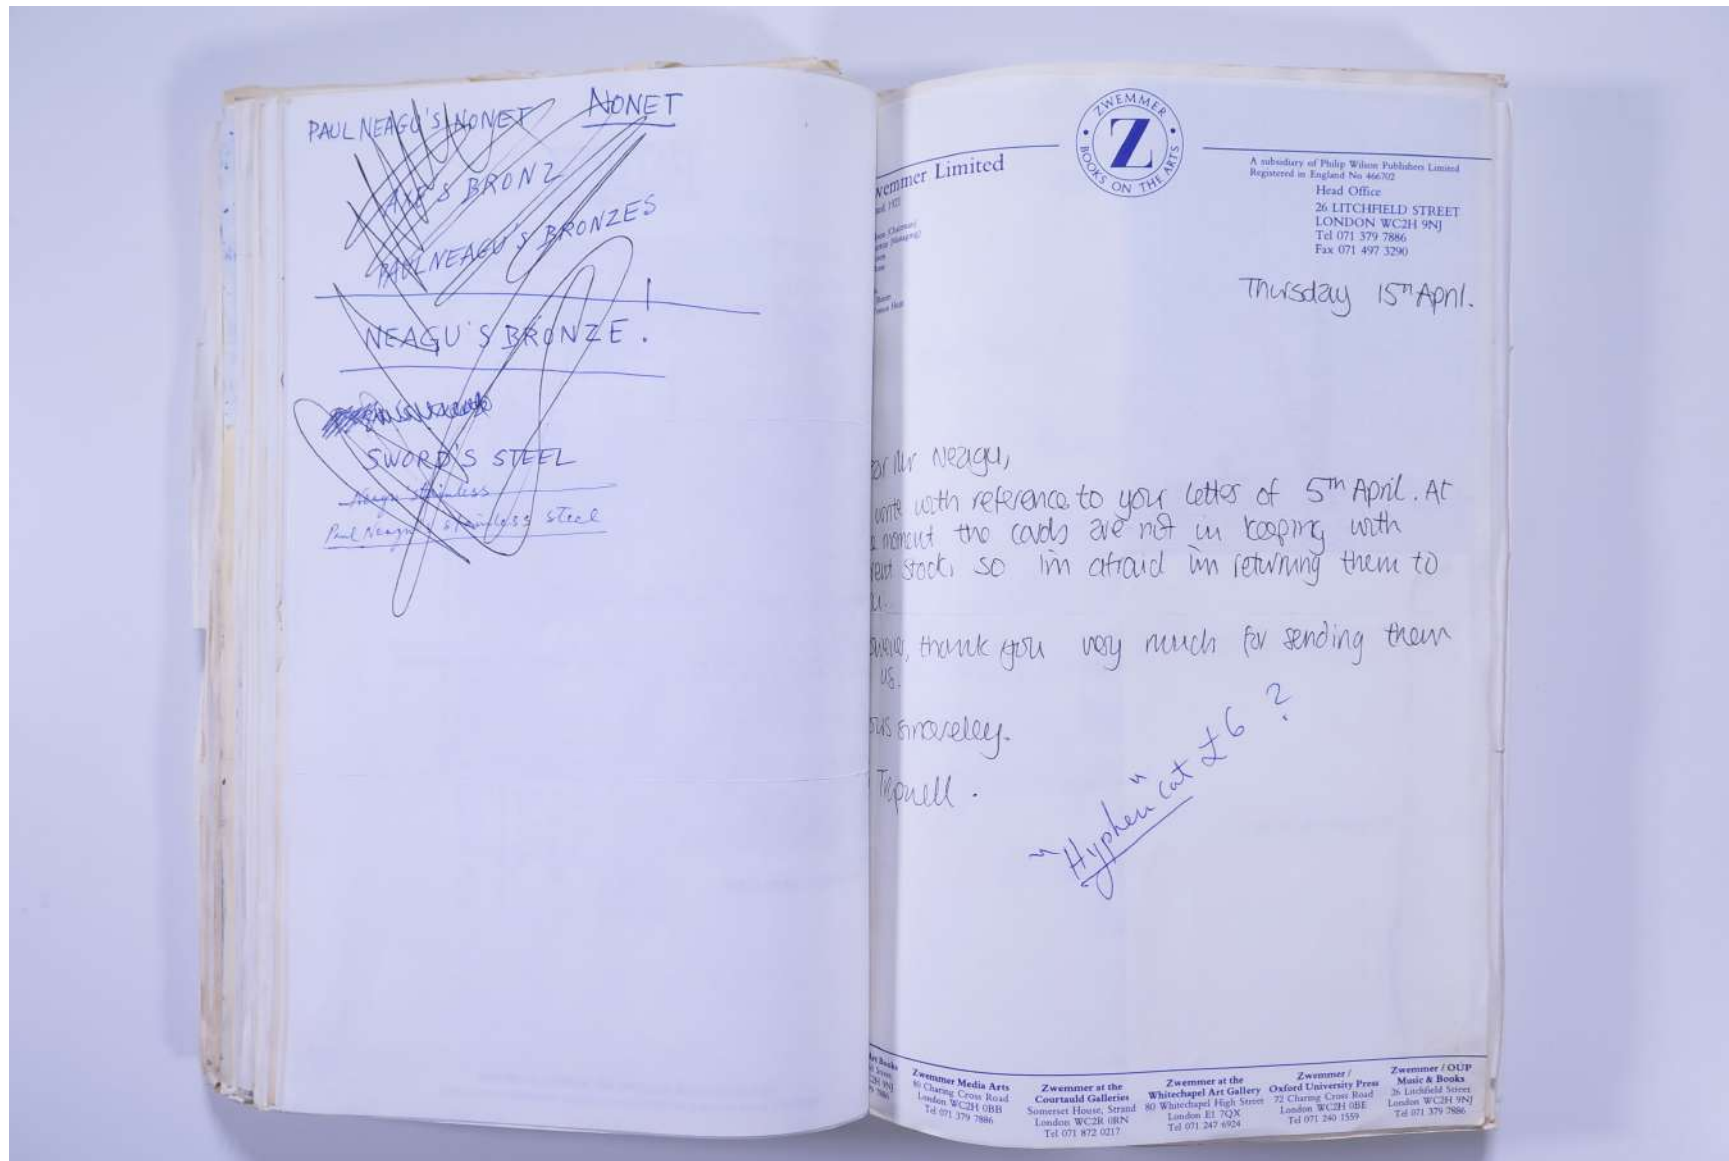 PAUL NEAGU'S NONET NONET
AXE'S BRONZ
PAUL NEAGU'S BRONZES
NEAGU'S BRONZE !
SWORD'S STEEL
Neagu stainless
Paul Neagu's stainless steel
ZWEMMER
BOOKS ON THE ARTS
Z
wemmer Limited
A subsidiary of Philip Wilson Publishers Limited
Registered in England No 466702
Head Office
26 LITCHFIELD STREET
LONDON WC2H 9NJ
Tel 071 379 7886
Fax 071 497 3290
Thursday 15th April.
ar Mr Neagu,
write with reference to your letter of 5th April. At
moment the cards are not in keeping with
rent stock, so im afraid im returning them to
u.
owever, thank you very much for sending them
us.
ours sincereley.
"Hyphen" cat £6 ?
Zwemmer Media Arts
80 Charing Cross Road
London WC2H 0BB
Tel 071 379 7886
Zwemmer at the
Courtauld Galleries
Somerset House, Strand
London WC2R 0RN
Tel 071 872 0217
Zwemmer at the
Whitechapel Art Gallery
80 Whitechapel High Street
London E1 7QX
Tel 071 247 6924
Zwemmer /
Oxford University Press
72 Charing Cross Road
London WC2H 0BE
Tel 071 240 1559
Zwemmer / OUP
Music & Books
26 Litchfield Street
London WC2H 9NJ
Tel 071 379 7886